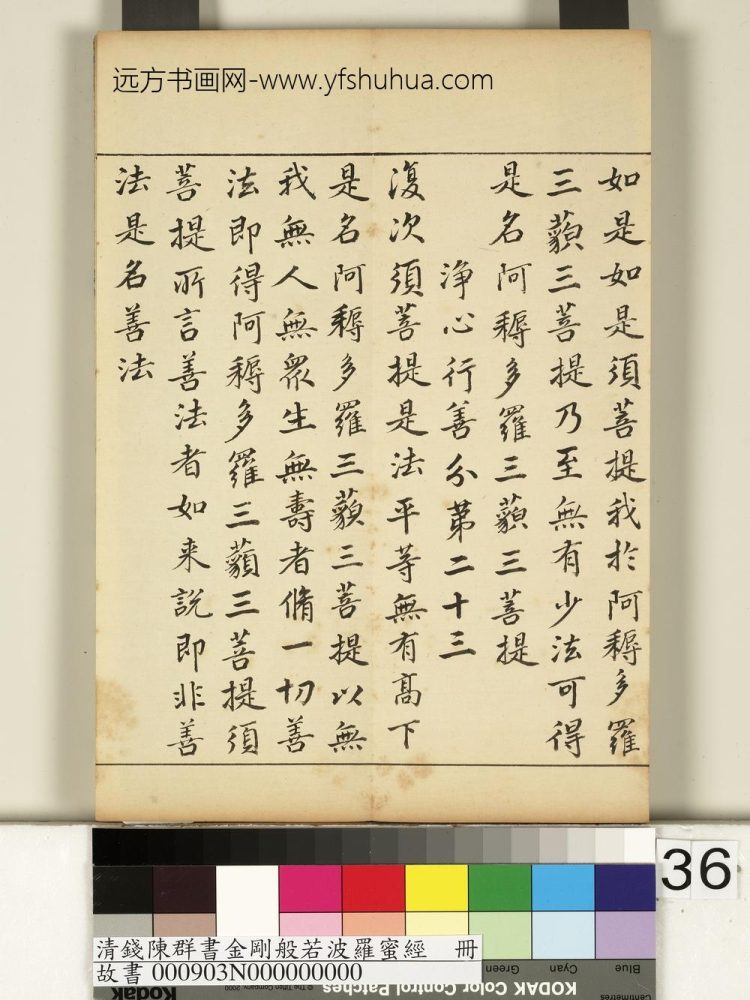 远方书画网-www.yfshuhua.com
如是如是須菩提我於阿耨多羅
三藐三菩提乃至無有少法可得
是名阿耨多羅三藐三菩提
淨心行善分第二十三
復次須菩提是法平等無有高下
是名阿耨多羅三藐三菩提以無
我無人無眾生無壽者脩一切善
法即得阿耨多羅三藐三菩提須
菩提所言善法者如来說即非善
法是名善法
36
清錢陳群書金剛般若波羅蜜經 冊
故書 000903N000000000
Green
Cyan
Blue
Kodak
© The Tiffen Company, 2000
KODAK Color Control Patches
Centimetres